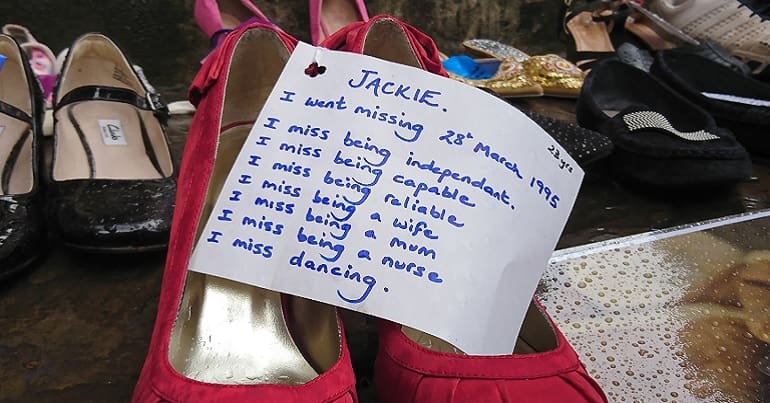 JACKIE.
I went missing 28th March 1995
23 yrs
I miss being independent.
I miss being capable
I miss being reliable
I miss being a wife
I miss being a mum
I miss being a nurse
I miss dancing.
Clarks